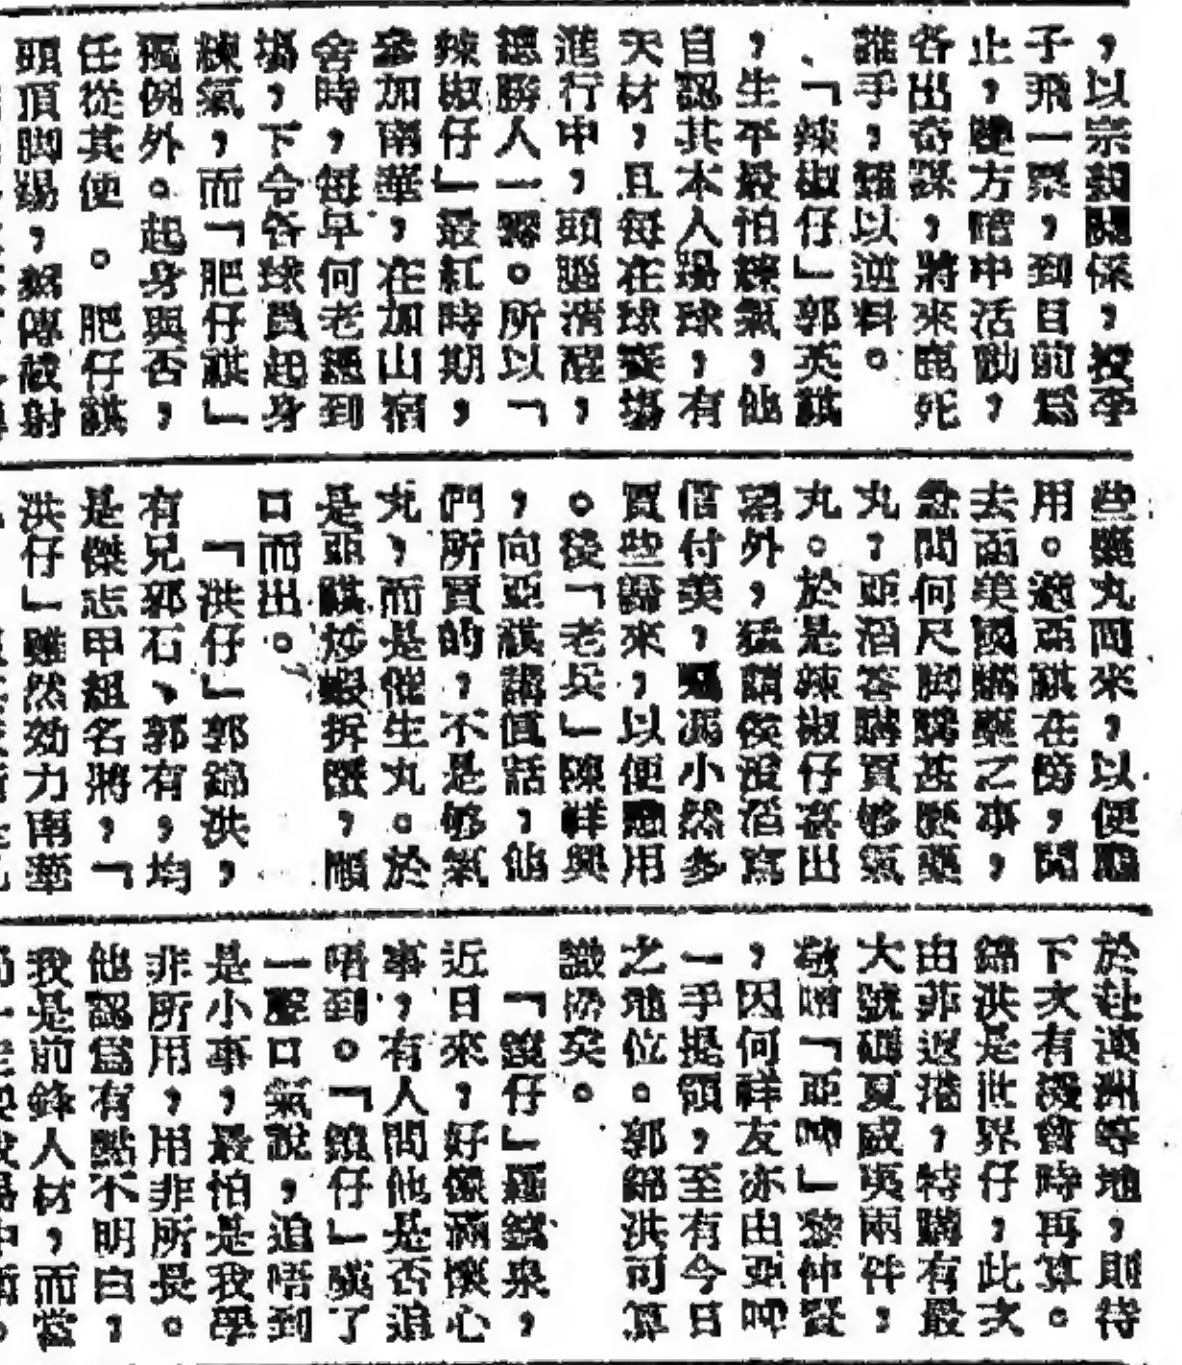 ，以宗親關係，投李
子飛一票，到目前為
止，雙方暗中活動，
各出奇謀，將來鹿死
誰手，難以逆料。
「辣椒仔」郭英祺
，生平最怕練氣，他
自認其本人踢球，有
天材，且每在球賽場
進行中，頭腦清醒，
聰勝人一籌。所以「
辣椒仔」最紅時期，
參加南華，在加山宿
舍時，每早何老總到
場，下令各球員起身
練氣，而「肥仔祺」
獨例外。起身與否，
任從其便。肥仔祺
頭頂脚踢，據傳被射
些藥丸回來，以便應
用。適亞祺在傍，聞
去函美國購藥之事，
急問何尺脚購甚麼藥
丸，亞滔答購買够氣
丸。於是辣椒仔喜出
望外，猛請侯澄滔寫
信付美，囑馮小然多
買些番來，以便應用
。後「老兵」陳祥興
，向亞祺講真話，他
們所買的，不是够氣
丸，而是催生丸。於
是亞祺炒蝦拆蟹，順
口而出。
「洪仔」郭錦洪，
有兄郭石、郭有，均
是傑志甲組名將，「
洪仔」雖然効力南華
於赴澳洲等地，則待
下次有機會時再算。
錦洪是世界仔，此次
由菲返港，特購有最
大號礵夏威夷兩件，
敬贈「亞呻」黎仲賢
，因何祥友亦由亞呻
一手提領，至有今日
之地位。郭錦洪可算
識撈矣。
「鏡仔」羅鏡泉，
近日來，好像滿懷心
事，有人問他是否追
唔到。「鏡仔」嘆了
一聲口氣說，追唔到
是小事，最怕是我學
非所用，用非所長。
他認為有點不明白，
我是前鋒人材，而當